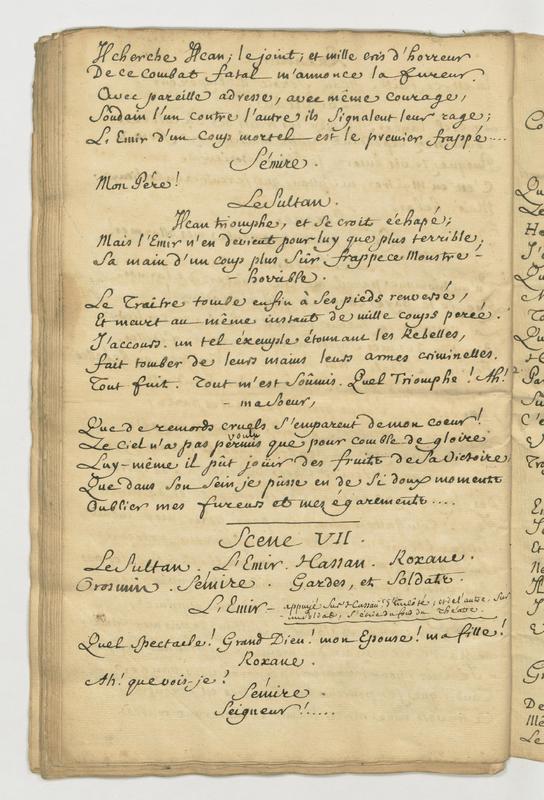 Il cherche Hcan; le joint; et mille cris d'horreur
De ce Combat fatal m'annonce la fureur.
Avec pareille adresse, avec même courage,
Soudain l'un contre l'autre ils Signalent leur rage;
L'Emir d'un Coup mortel est le premier frappé....
Sémire.
Mon Pére!
Le Sultan.
Hcan triomphe, et Se croit échapé;
Mais l'Emir n'en devient pour luy que plus terrible;
Sa main d'un coup plus Sûr frappe ce Monstre -
- horrible.
Le Traitre tombe enfin à Ses pieds renversé,
Et meurt au même instant de mille coups percé.
J'accours. un tel exemple étonnant les Rebelles,
fait tomber de leurs mains leurs armes criminelles.
Tout fuit. Tout m'est Soûmis. Quel Triomphe! Ah!
- ma Soeur,
Que de remords cruels S'emparent de mon coeur!
Le Ciel n'a pas permis que pour comble de gloire
Luy-même il pût joüir des fruits de Sa Victoire
Que dans Son Sein je pusse en de Si doux moments
Oublier mes fureurs et mes égarements....
Scene VII.
Le Sultan. L'Emir. Hassan. Roxane.
Orosmin. Sémire. Gardes, et Soldats.
L'Emir - appuyé Sur Hassan d'un côté, et de l'autre Sur
un Soldat, S'écrie du fond du Théatre.
Quel Spectacle! Grand Dieu! mon Epouse! ma fille!
Roxane.
Ah! que vois-je?
Sémire.
Seigneur!.....